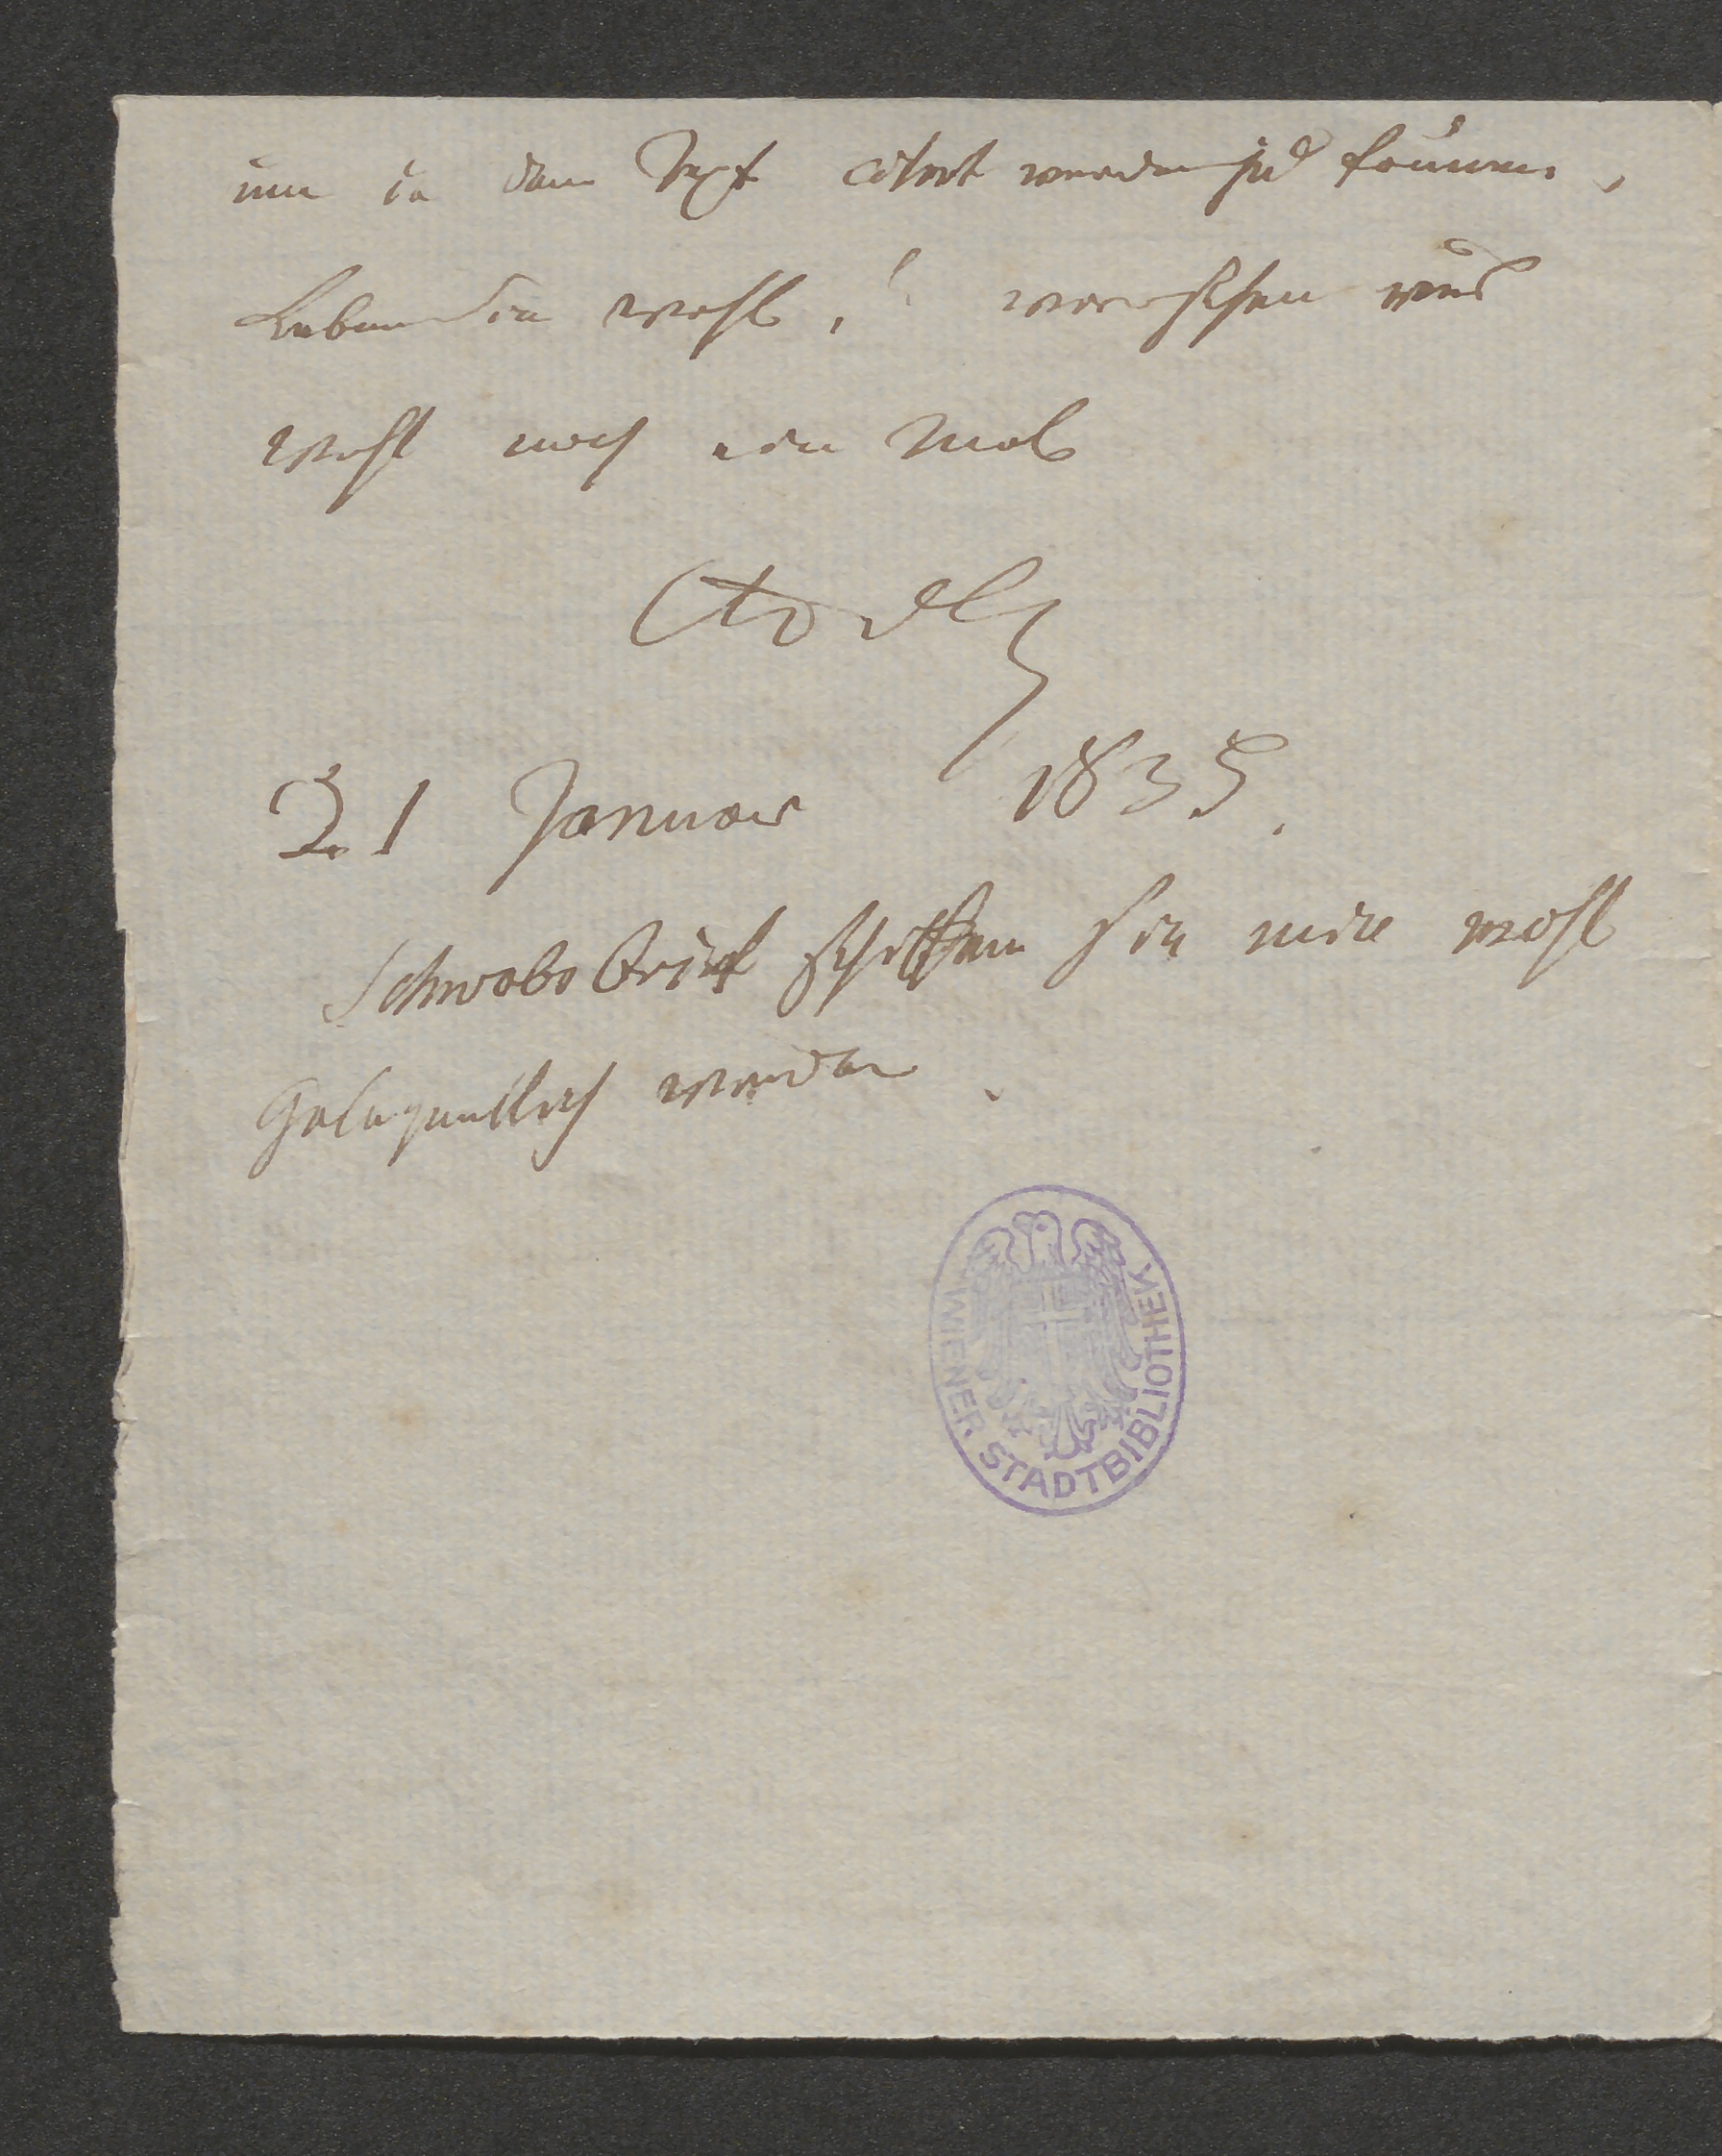 um in dem Text citirt werden zu können.
Leben Sie wohl, ! wir sehen uns
wohl noch ein Mal
21 Januar 1835.
Schwabs Brief schikken Sie mir wohl
Gelegentlich wieder.
WIENER STADTBIBLIOTHEK